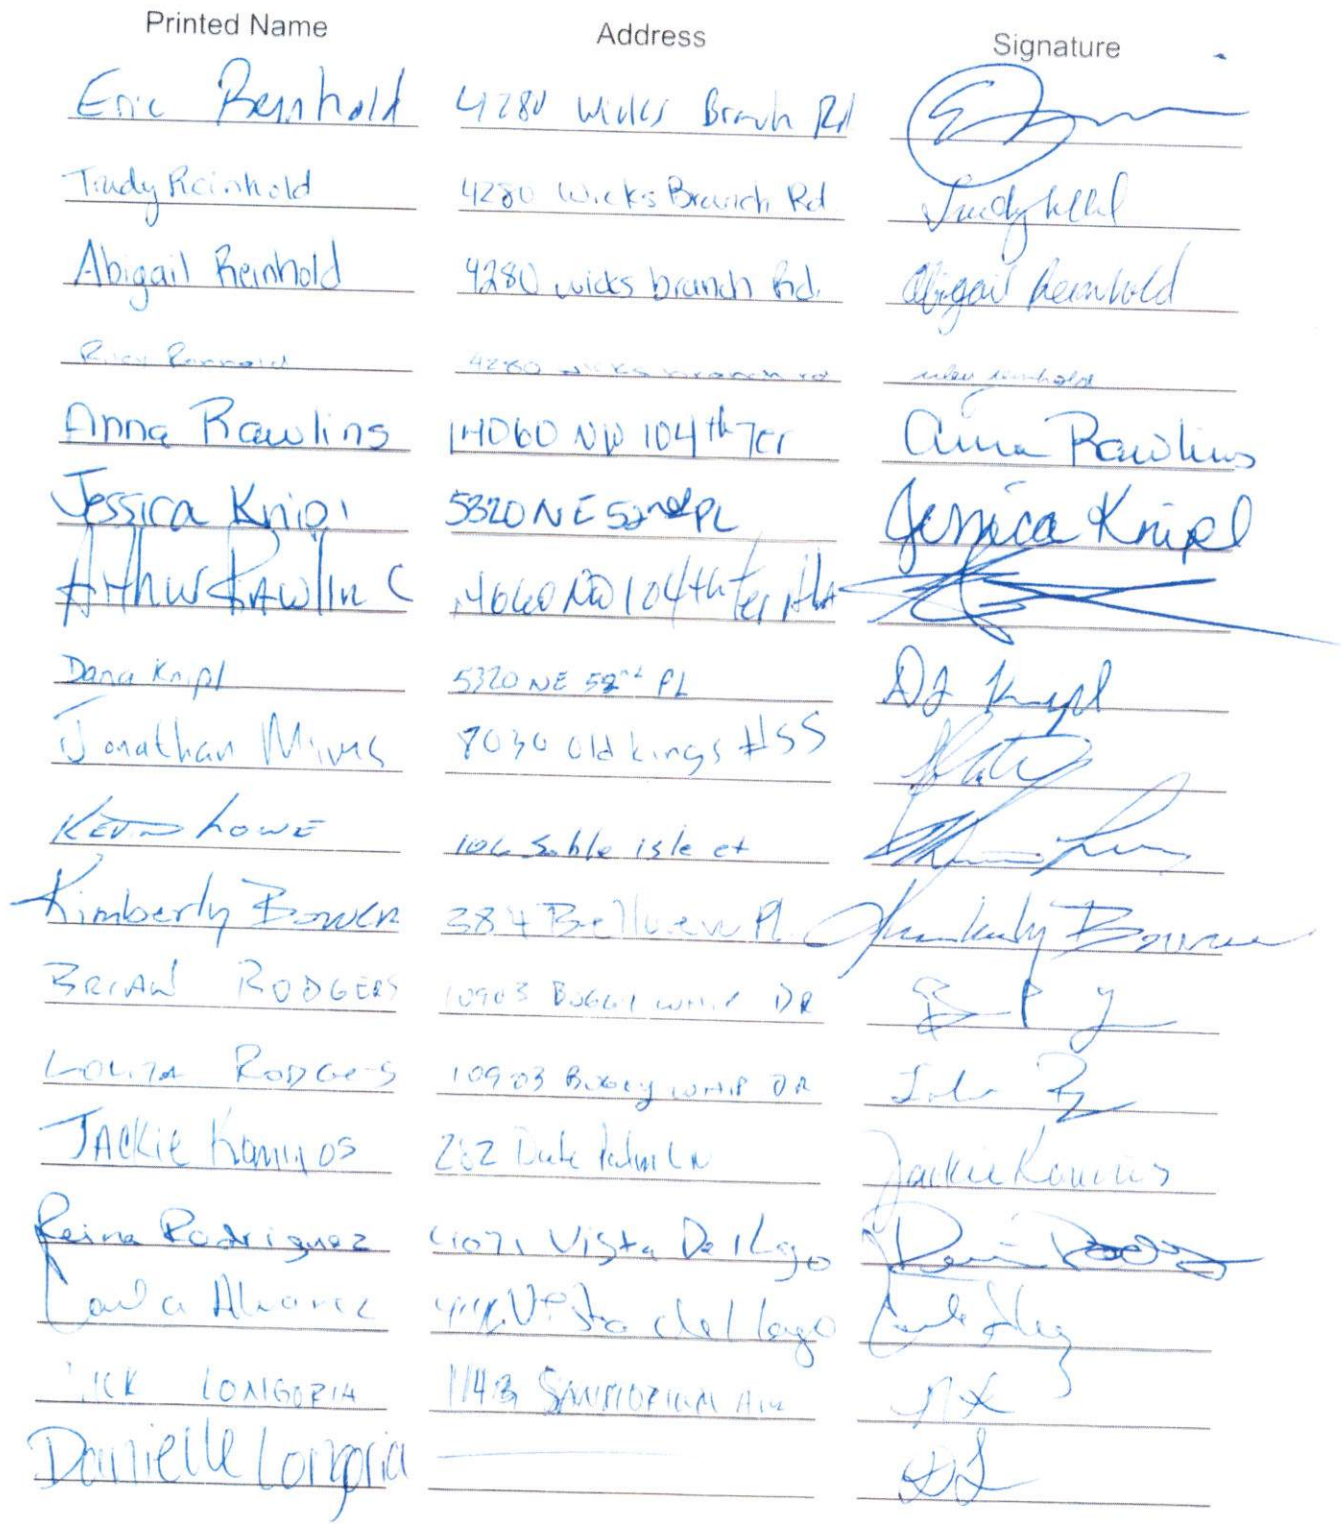 Printed Name Address Signature
Eric Reinhold 4280 Wicks Branch Rd
Trudy Reinhold 4280 Wicks Branch Rd Trudy
Abigail Reinhold 4280 wicks branch Rd. Abigail Reinhold
4280 wicks branch rd reinhold
Anna Rawlins 14060 NW 104th Ter Anna Rawlins
Jessica Knipl 5320 NE 52nd PL Jessica Knipl
Arthur Rawlin 14060 NW 104th Ter
Dana Knipl 5320 NE 52nd PL DJ Knipl
Jonathan 8030 old kings #55
Kevin Lowe 106 Sable isle ct
Kimberly Bowen 384 Pl. Kimberly Bowen
BRIAN RODGERS 10903 BUGGY WHIP DR
RODGERS 10903 Buggy WHIP DR
JACKIE Kaminos 262 Date Palm LN Jackie Kaminos
Reina Rodriguez 4071 Vista Del Lago
Carla Alvarez Vista del lago
LONGORIA 1143
Danielle Longoria DL